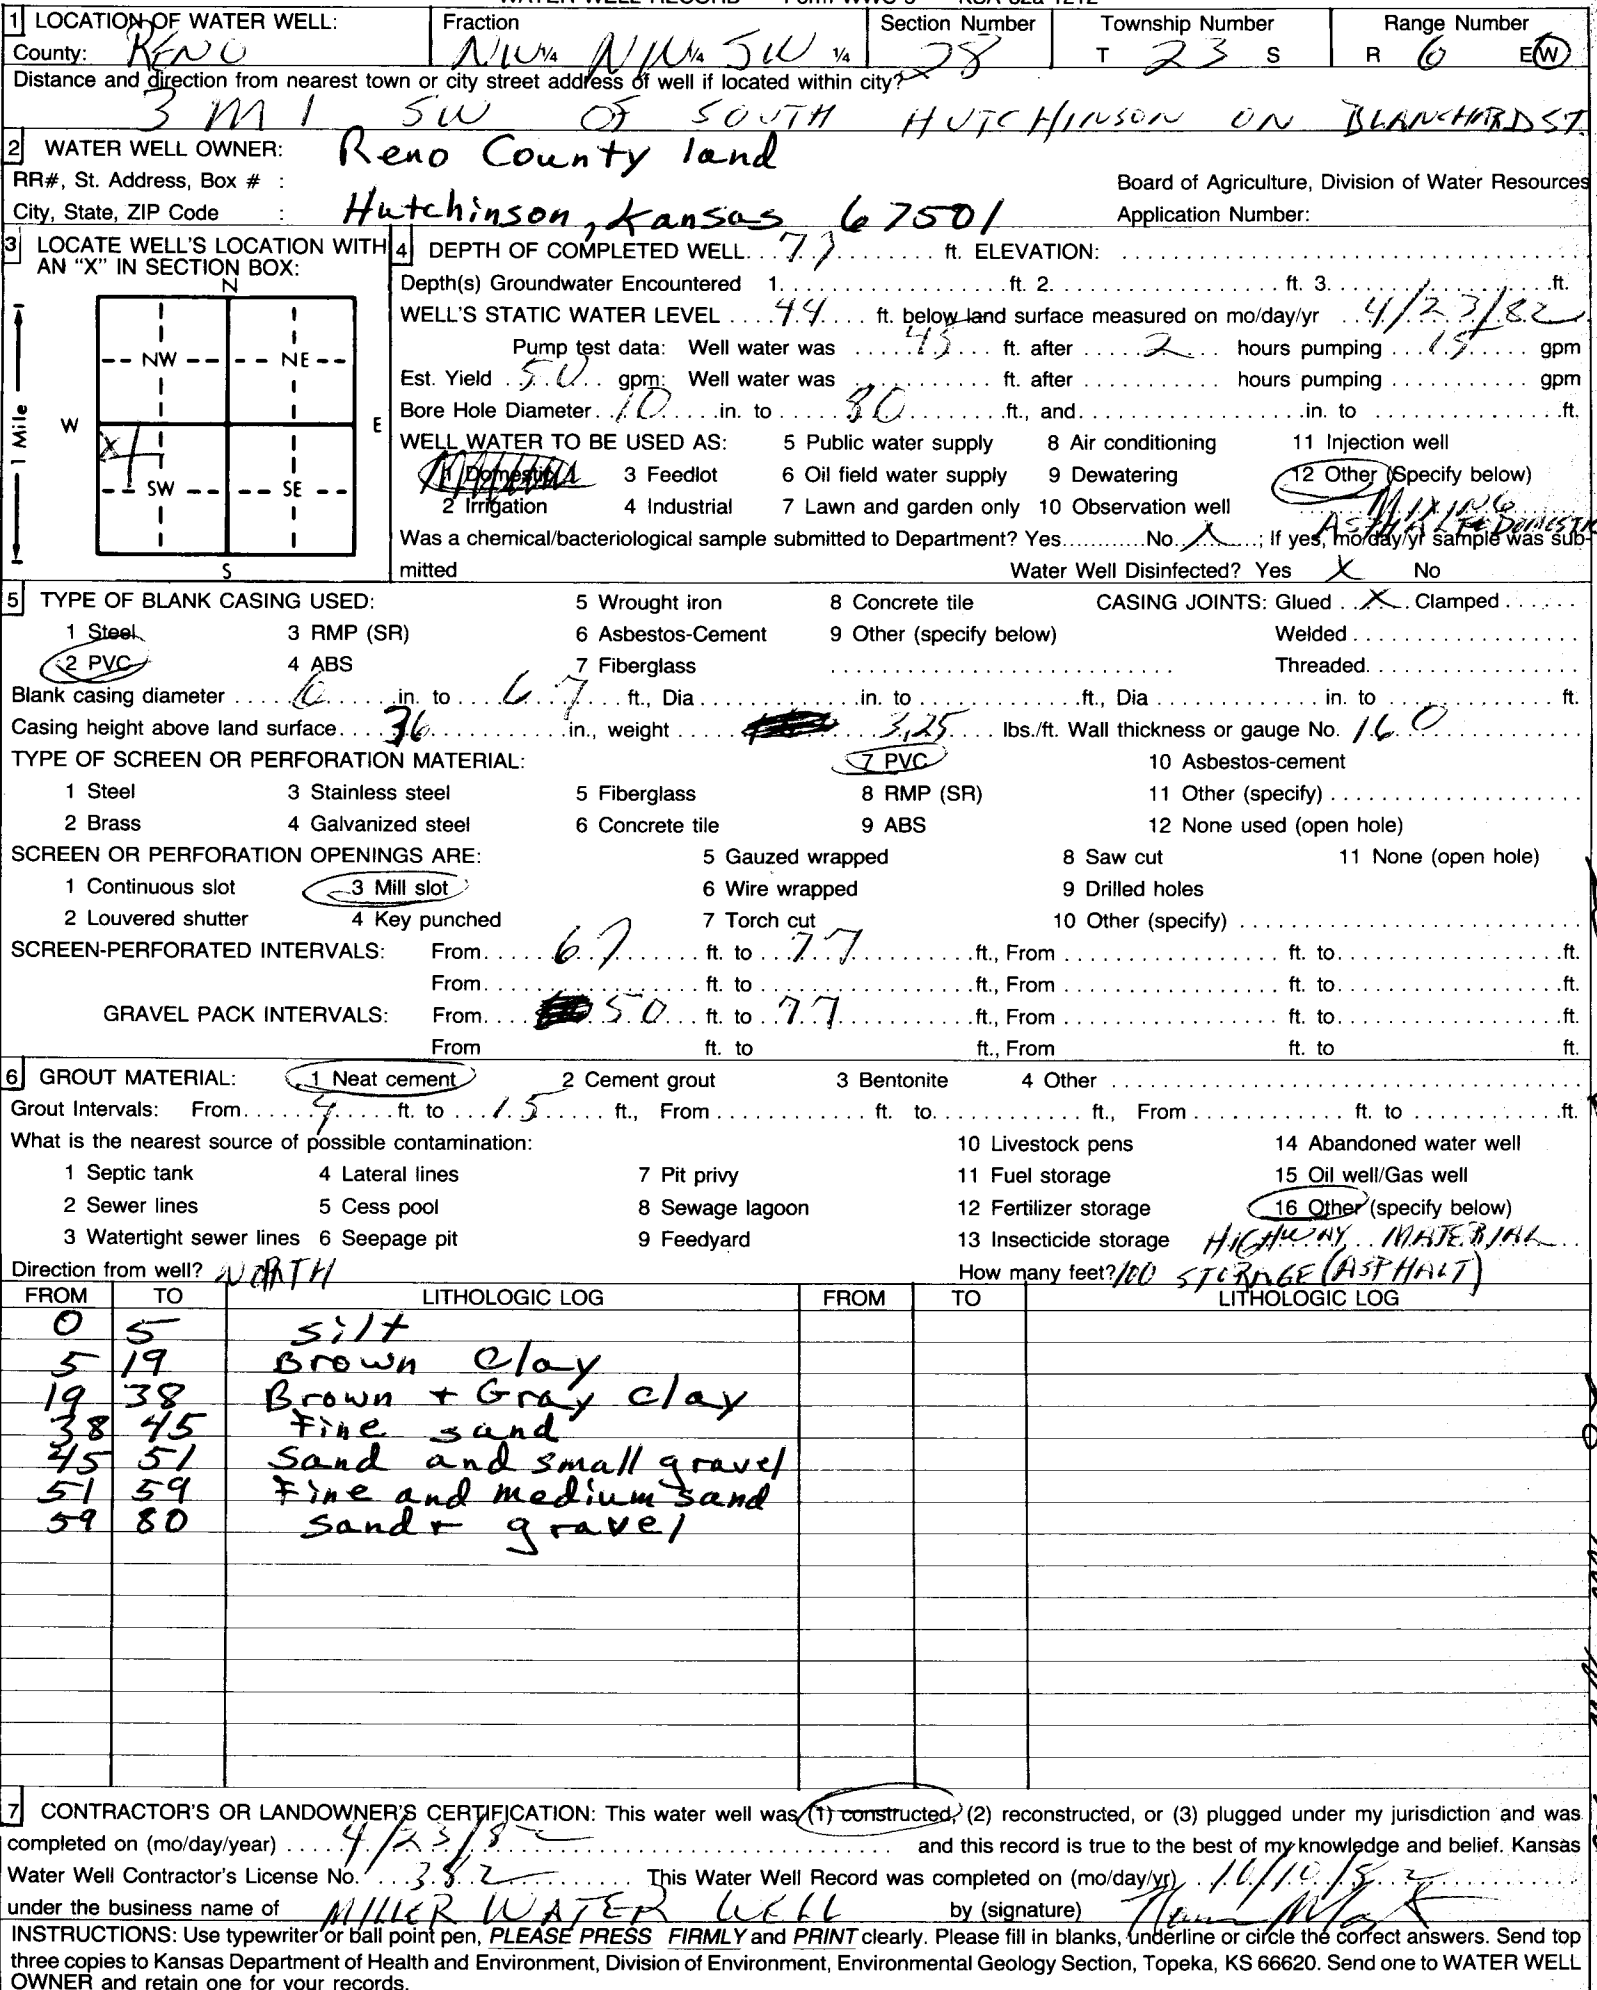 WATER WELL RECORD Form WWC-5 KSA 82a-1212
1 LOCATION OF WATER WELL: Fraction Section Number Township Number Range Number
County: RENO NW 1/4 NW 1/4 SW 1/4 28 T 23 S R 6 E W
Distance and direction from nearest town or city street address of well if located within city?
3 MI SW OF SOUTH HUTCHINSON ON BLANCHARD ST.
2 WATER WELL OWNER: Reno County land
RR#, St. Address, Box # : Board of Agriculture, Division of Water Resources
City, State, ZIP Code : Hutchinson, Kansas 67501 Application Number:
3 LOCATE WELL'S LOCATION WITH AN "X" IN SECTION BOX:
N
NW NE
W E
X
SW SE
S
1 Mile
4 DEPTH OF COMPLETED WELL 77 ft. ELEVATION:
Depth(s) Groundwater Encountered 1. ft. 2. ft. 3. ft.
WELL'S STATIC WATER LEVEL 44 ft. below land surface measured on mo/day/yr 4/23/82
Pump test data: Well water was 45 ft. after 2 hours pumping 15 gpm
Est. Yield 50 gpm: Well water was ft. after hours pumping gpm
Bore Hole Diameter 10 in. to 80 ft., and in. to ft.
WELL WATER TO BE USED AS: 5 Public water supply 8 Air conditioning 11 Injection well
1 Domestic 3 Feedlot 6 Oil field water supply 9 Dewatering 12 Other (Specify below)
2 Irrigation 4 Industrial 7 Lawn and garden only 10 Observation well MIXING
ASPHALT & DOMESTIC
Was a chemical/bacteriological sample submitted to Department? Yes No X ; If yes, mo/day/yr sample was sub-
mitted Water Well Disinfected? Yes X No
5 TYPE OF BLANK CASING USED: 5 Wrought iron 8 Concrete tile CASING JOINTS: Glued X Clamped
1 Steel 3 RMP (SR) 6 Asbestos-Cement 9 Other (specify below) Welded
2 PVC 4 ABS 7 Fiberglass Threaded
Blank casing diameter 6 in. to 67 ft., Dia in. to ft., Dia in. to ft.
Casing height above land surface 36 in., weight 3.25 lbs./ft. Wall thickness or gauge No. 160
TYPE OF SCREEN OR PERFORATION MATERIAL: 7 PVC 10 Asbestos-cement
1 Steel 3 Stainless steel 5 Fiberglass 8 RMP (SR) 11 Other (specify)
2 Brass 4 Galvanized steel 6 Concrete tile 9 ABS 12 None used (open hole)
SCREEN OR PERFORATION OPENINGS ARE: 5 Gauzed wrapped 8 Saw cut 11 None (open hole)
1 Continuous slot 3 Mill slot 6 Wire wrapped 9 Drilled holes
2 Louvered shutter 4 Key punched 7 Torch cut 10 Other (specify)
SCREEN-PERFORATED INTERVALS: From 67 ft. to 77 ft., From ft. to ft.
From ft. to ft., From ft. to ft.
GRAVEL PACK INTERVALS: From 50 ft. to 77 ft., From ft. to ft.
From ft. to ft., From ft. to ft.
6 GROUT MATERIAL: 1 Neat cement 2 Cement grout 3 Bentonite 4 Other
Grout Intervals: From 4 ft. to 15 ft., From ft. to ft., From ft. to ft.
What is the nearest source of possible contamination: 10 Livestock pens 14 Abandoned water well
1 Septic tank 4 Lateral lines 7 Pit privy 11 Fuel storage 15 Oil well/Gas well
2 Sewer lines 5 Cess pool 8 Sewage lagoon 12 Fertilizer storage 16 Other (specify below)
3 Watertight sewer lines 6 Seepage pit 9 Feedyard 13 Insecticide storage HIGHWAY MATERIAL
Direction from well? NORTH How many feet? 100 STORAGE (ASPHALT)
FROM TO LITHOLOGIC LOG FROM TO LITHOLOGIC LOG
0 5 silt
5 19 Brown Clay
19 38 Brown + Gray clay
38 45 Fine sand
45 51 Sand and small gravel
51 59 Fine and medium sand
59 80 sand + gravel
7 CONTRACTOR'S OR LANDOWNER'S CERTIFICATION: This water well was (1) constructed, (2) reconstructed, or (3) plugged under my jurisdiction and was
completed on (mo/day/year) 4/23/82 and this record is true to the best of my knowledge and belief. Kansas
Water Well Contractor's License No. 382 This Water Well Record was completed on (mo/day/yr) 10/10/82
under the business name of MILLER WATER WELL by (signature)
INSTRUCTIONS: Use typewriter or ball point pen, PLEASE PRESS FIRMLY and PRINT clearly. Please fill in blanks, underline or circle the correct answers. Send top
three copies to Kansas Department of Health and Environment, Division of Environment, Environmental Geology Section, Topeka, KS 66620. Send one to WATER WELL
OWNER and retain one for your records.